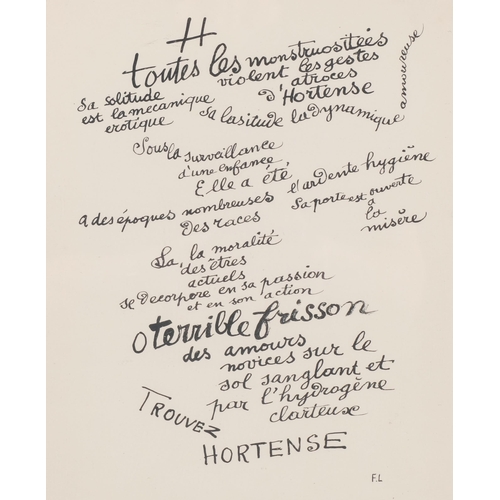 H
toutes les monstruositées
violent les gestes
atroces
d'Hortense
Sa solitude
est la mécanique
erotique
Sa lasitude la dynamique
amoureuse
Sous la surveillance
d'une enfance
Elle a été,
a des époques nombreuses
l'ardente hygiène
Des races
Sa porte est ouverte
à
la
misère
Sa, la moralité
des êtres
actuels
se decorpore en sa passion
et en son action
O terrible frisson
des amours
novices sur le
sol sanglant et
par l'hydrogène
clarteux
TROUVEZ
HORTENSE
F.L